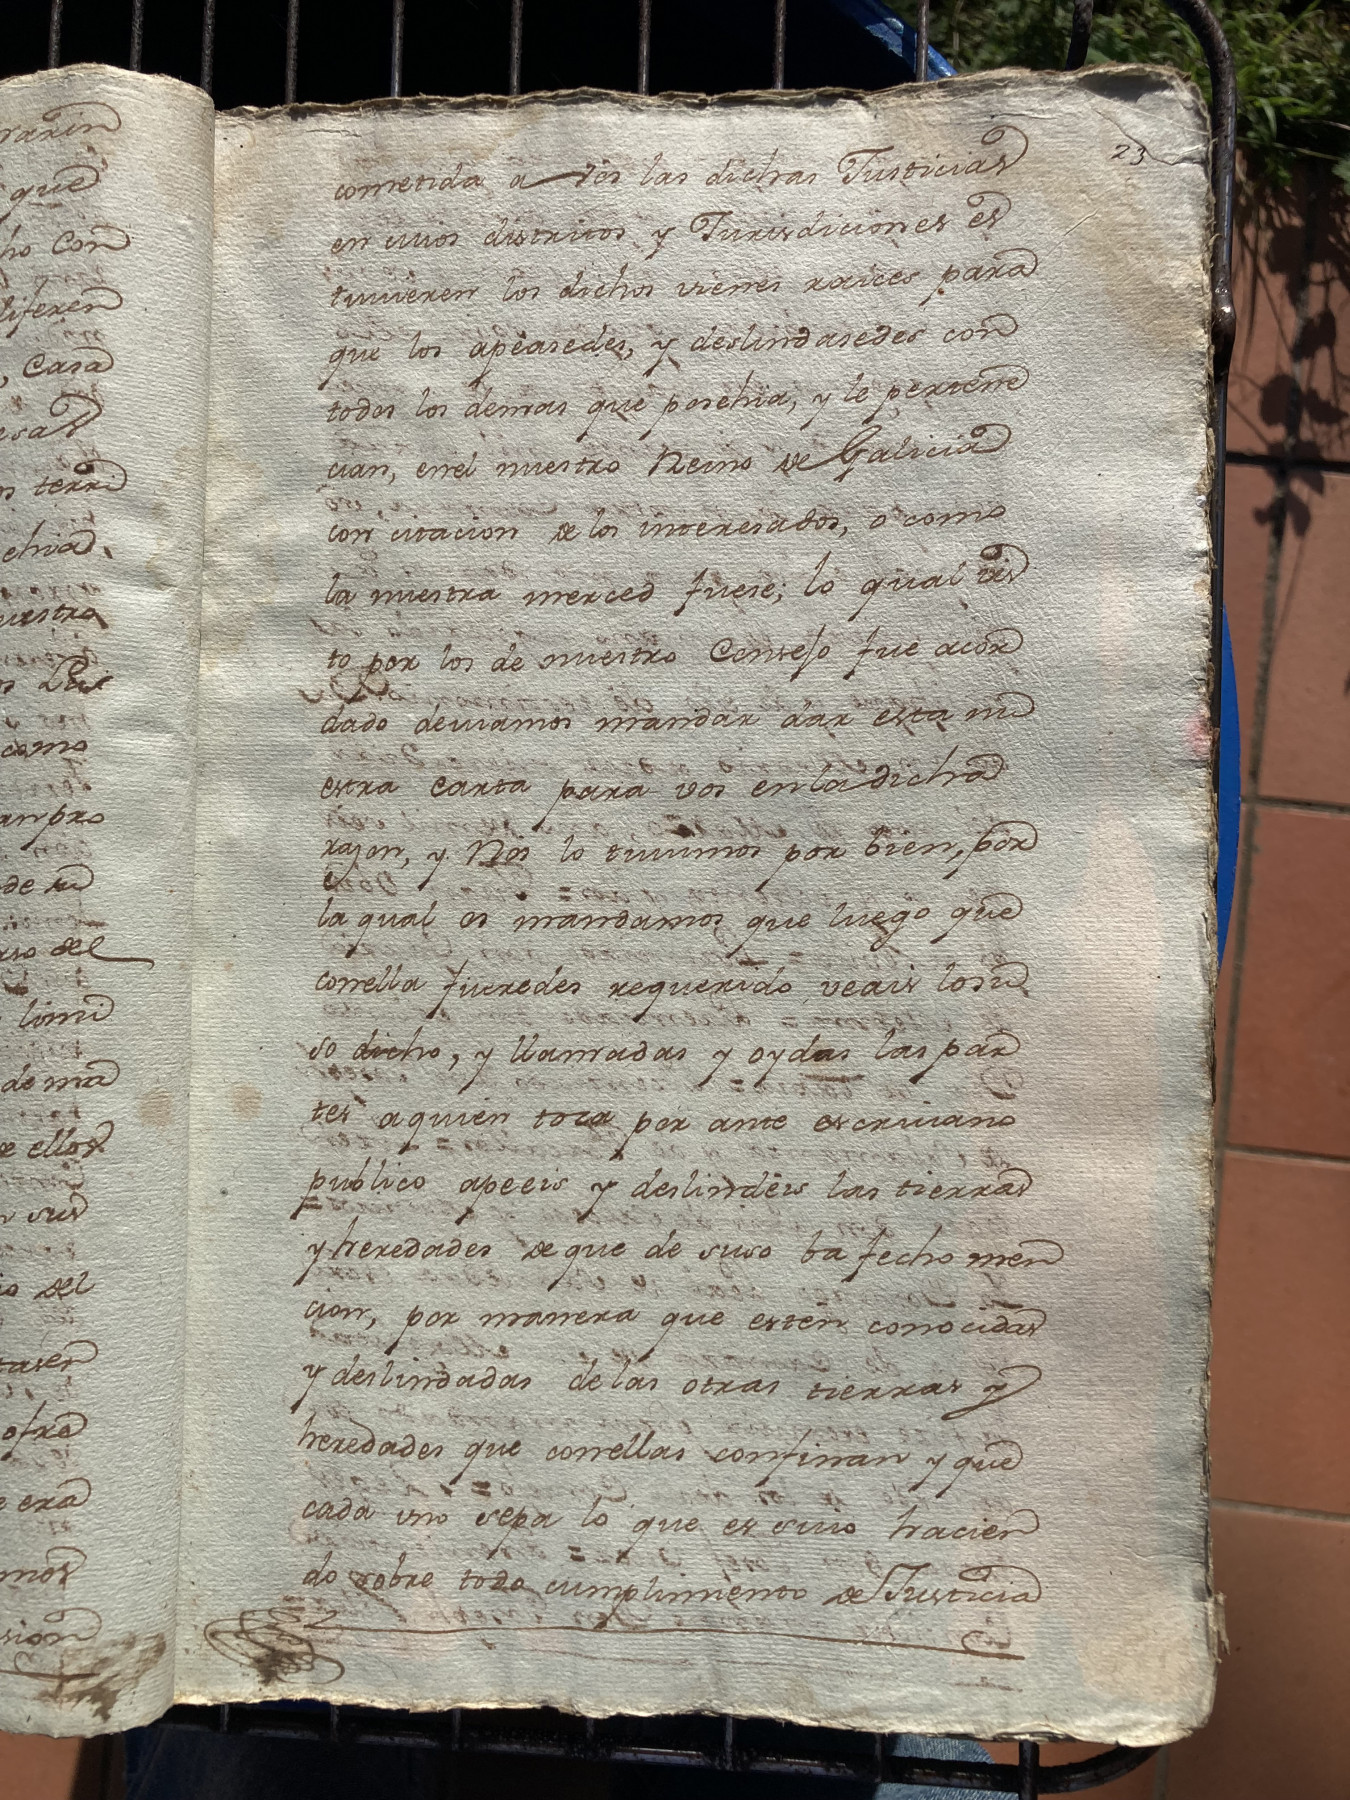 23
cometida a vos las dichas Justicias
en cuios districtos y Jurisdiciones es
tuuieren los dichos vienes raices para
que los apeasedes, y deslindasedes con
todos los demas que posehia, y le pertene
cian, enel nuestro Reino de Galicia
con citacion de los interesados, o como
la nuestra merced fuese; lo qual vis
to por los de nuestro Consejo fue acor
dado deuiamos mandar dar esta nu
estra carta para vos en la dicha
razon, y Nos lo tuuimos por bien, por
la qual os mandamos que luego que
conella fueredes requerido veais lo su
so dicho, y llamadas y oydas las par
tes aquien toca por ante escriuano
publico apeeis y deslindeis las tierras
y heredades de que de suso ba fecho men
cion, por manera que esten conocidas
y deslindadas de las otras tierras y
heredades que conellas confinan y que
cada uno sepa lo que es suio hacien
do sobre todo cumplimiento de Justicia
que
ho Con
diferen
, Casa
terri
ehia,
uestra
como
an pro
de su
del
limi
de ma
de ellos
sus
del
ofre
era
mos
sion